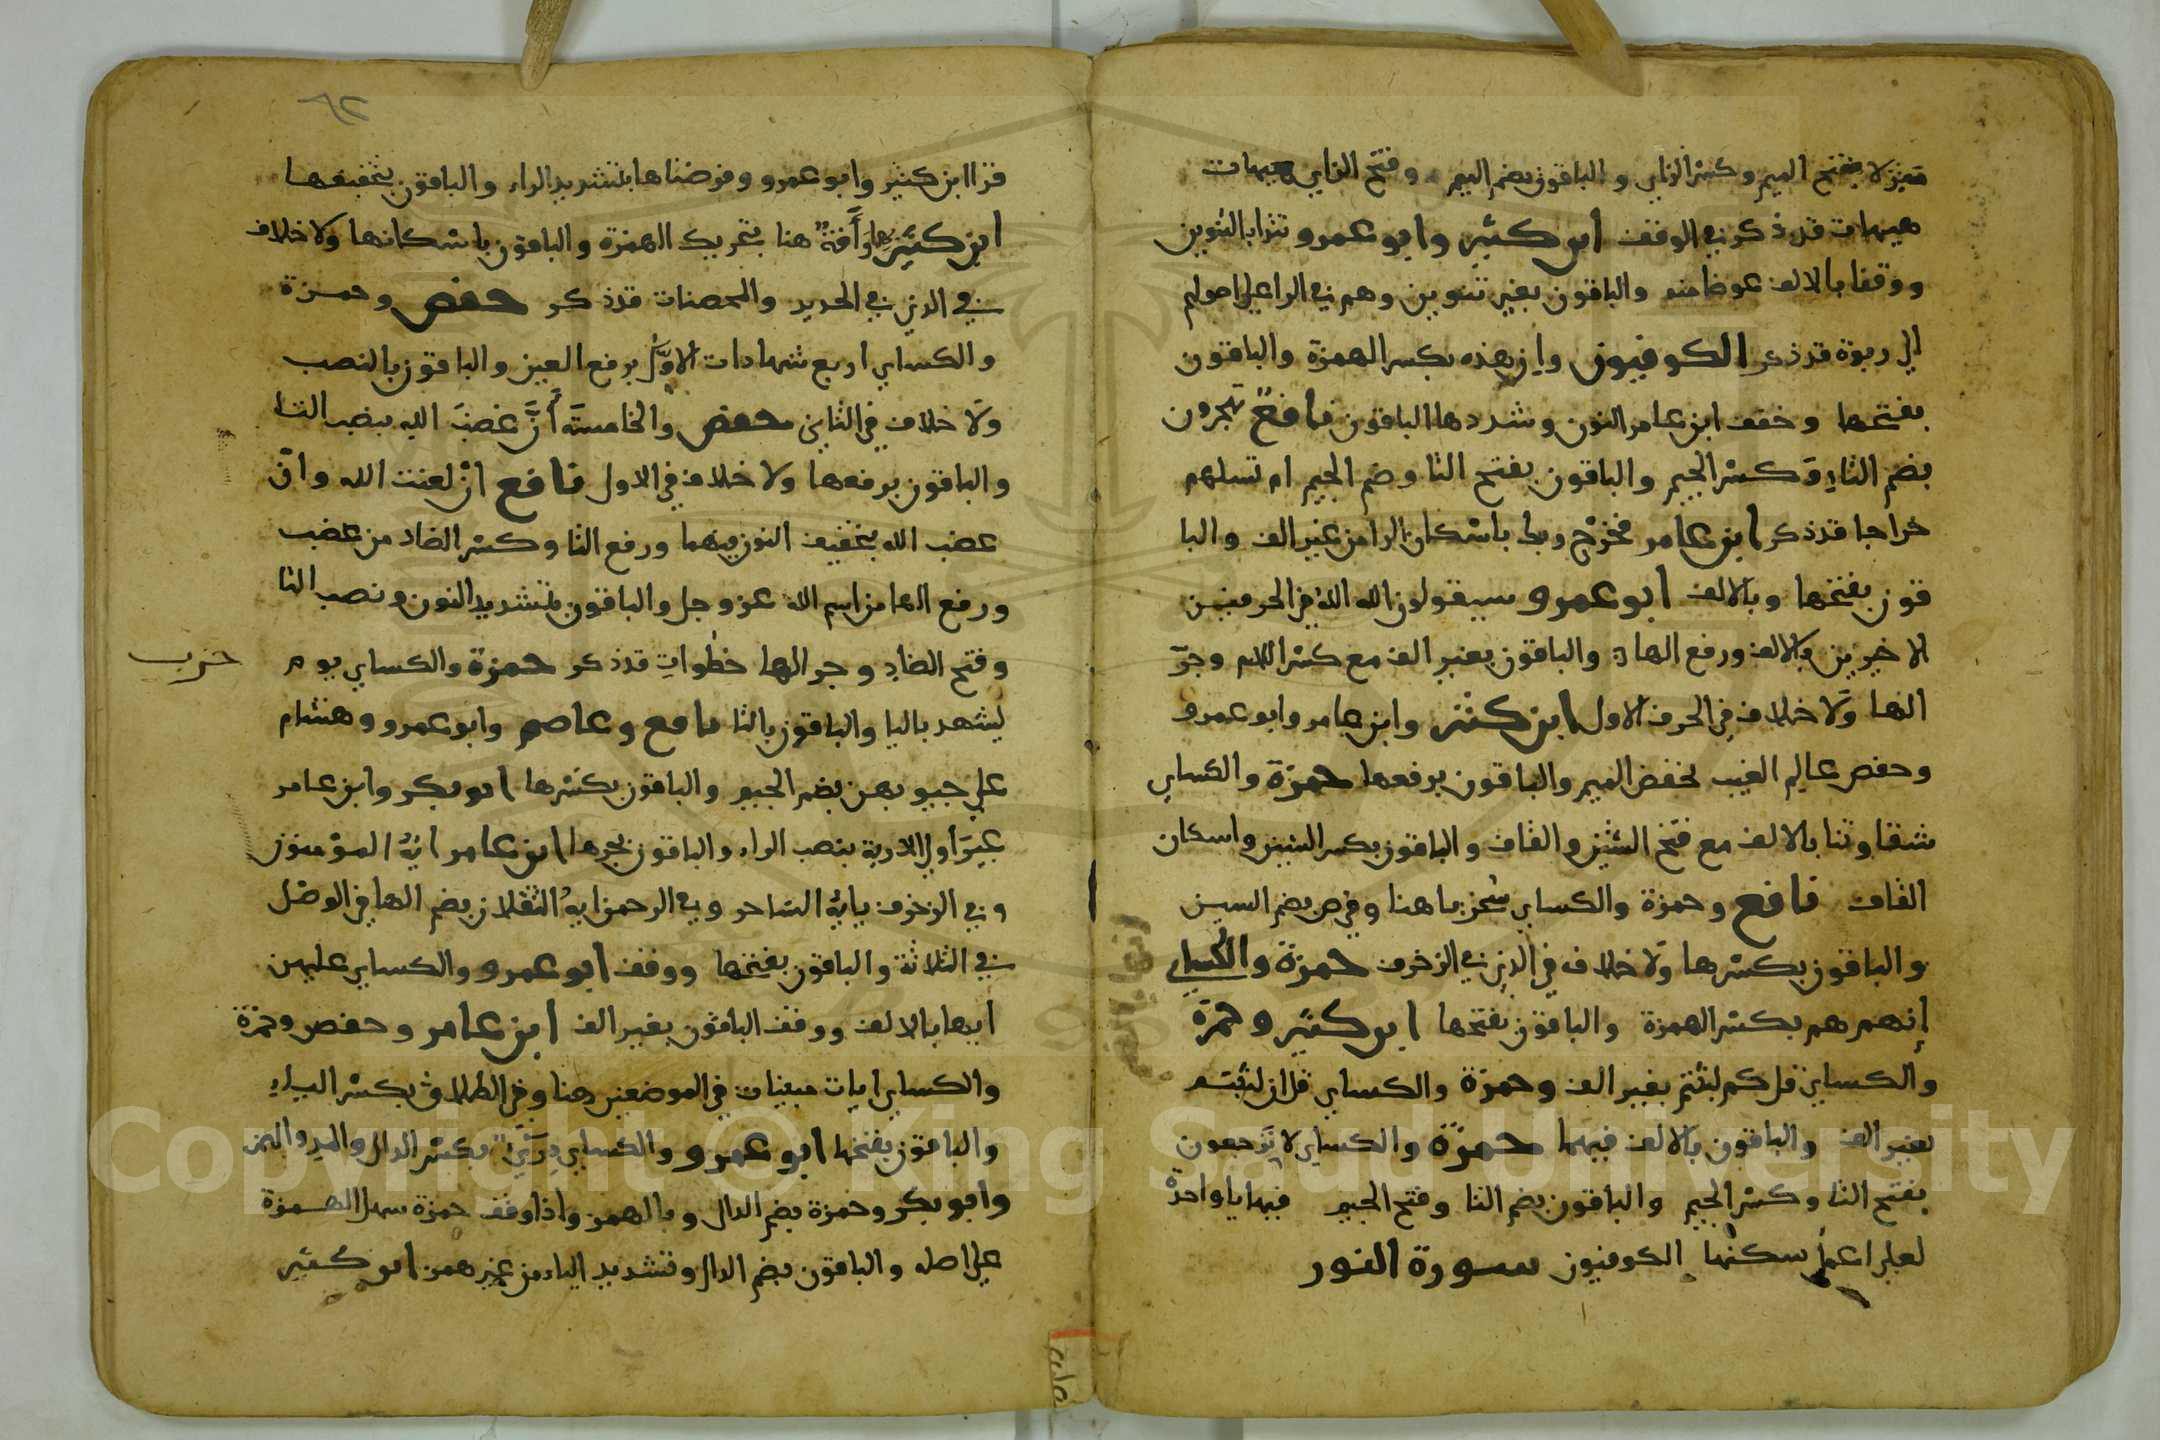 منزلا بفتح الميم وكسر الزاي والباقون بضم الميم وفتح الزاي هيهات
هيهات قد ذكر في الوقف ابن كثير وابو عمرو تترا بالتنوين
ووقفا بالالف عوضا منه والباقون بغير تنوين وهم في الرا علي اصولهم
الي ربوة قد ذكر الكوفيون وإن هذه بكسر الهمزة والباقون
بفتحها وخفف ابن عامر النون وشددها الباقون نافع تهجرون
بضم التاء وكسر الجيم والباقون بفتح التا وضم الجيم ام تسلهم
خراجا قد ذكر ابن عامر فخرج ربك باسكان الرا من غير الف والبا
قون بفتحها وبالالف ابو عمرو سيقولون الله الله في الحرفين
الاخيرين بالالف ورفع الهاء والباقون بغير الف مع كسر اللام وجر
الها ولا خلاف في الحرف الاول ابن كثير وابن عامر وابو عمرو
وحفص عالم الغيب بخفض الميم والباقون برفعها حمزة والكساي
شقاوتنا بالالف مع فتح الشين والقاف والباقون بكسر الشين واسكان
القاف نافع وحمزة والكساي سخريا هنا وفي ص بضم السين
والباقون بكسرها ولا خلاف في الذي في الزخرف حمزة والكساي
إنهم هم بكسر الهمزة والباقون بفتحها ابن كثير وحمزة
والكساي قل كم لبثتم بغير الف وحمزة والكساي قل ان لبثتم
بغير الف والباقون بالالف فيهما حمزة والكساي لا ترجعون
بفتح التا وكسر الجيم والباقون بضم التا وفتح الجيم فيها يا واحدة
لعلي اعمل سكنها الكوفيون سورة النور
٩٢
قرا ابن كثير وابو عمرو وفرضناها بتشديد الراء والباقون بتخفيفها
ابن كثير بهما رأفة هنا بتحريك الهمزة والباقون باسكانها ولا خلاف
في الذي في الحديد والمحصنات قد ذكر حفص وحمزة
والكساي اربع شهادات الاول برفع العين والباقون بالنصب
ولا خلاف في الثاني حفص والخامسة أن غضب الله بنصب التا
والباقون برفعها ولا خلاف في الاول نافع ان لعنت الله وان
غضب الله بتخفيف النون فيهما ورفع التا وكسر الضاد من غضب
ورفع الها من اسم الله عز وجل والباقون بتشديد النون ونصب التا
وفتح الضاد وجر الها خطوات قد ذكر حمزة والكساي يوم
حزب
يشهد باليا والباقون بالتا نافع وعاصم وابو عمرو وهشام
علي جيوبهن بضم الجيم والباقون بكسرها ابو بكر وابن عامر
غير اولي الاربة بنصب الراء والباقون بجرها ابن عامر ايه المؤمنون
وفي الزخرف يايه الساحر وفي الرحمن ايه الثقلان بضم الها في الوصل
في الثلاثة والباقون بفتحها ووقف ابو عمرو والكساي عليهن
ايها بالالف ووقف الباقون بغير الف ابن عامر وحفص وحمزة
والكساي ايات مبينات في الموضعين هنا وفي الطلاق بكسر الياء
والباقون بفتحها ابو عمرو والكساي دريء بكسر الدال والمد والهمز
وابو بكر وحمزة بضم الدال وبالهمز واذا وقف حمزة سهل الهمزة
علي اصله والباقون بضم الدال وتشديد الياء من غير همز ابن كثير
Copyright © King Saud University